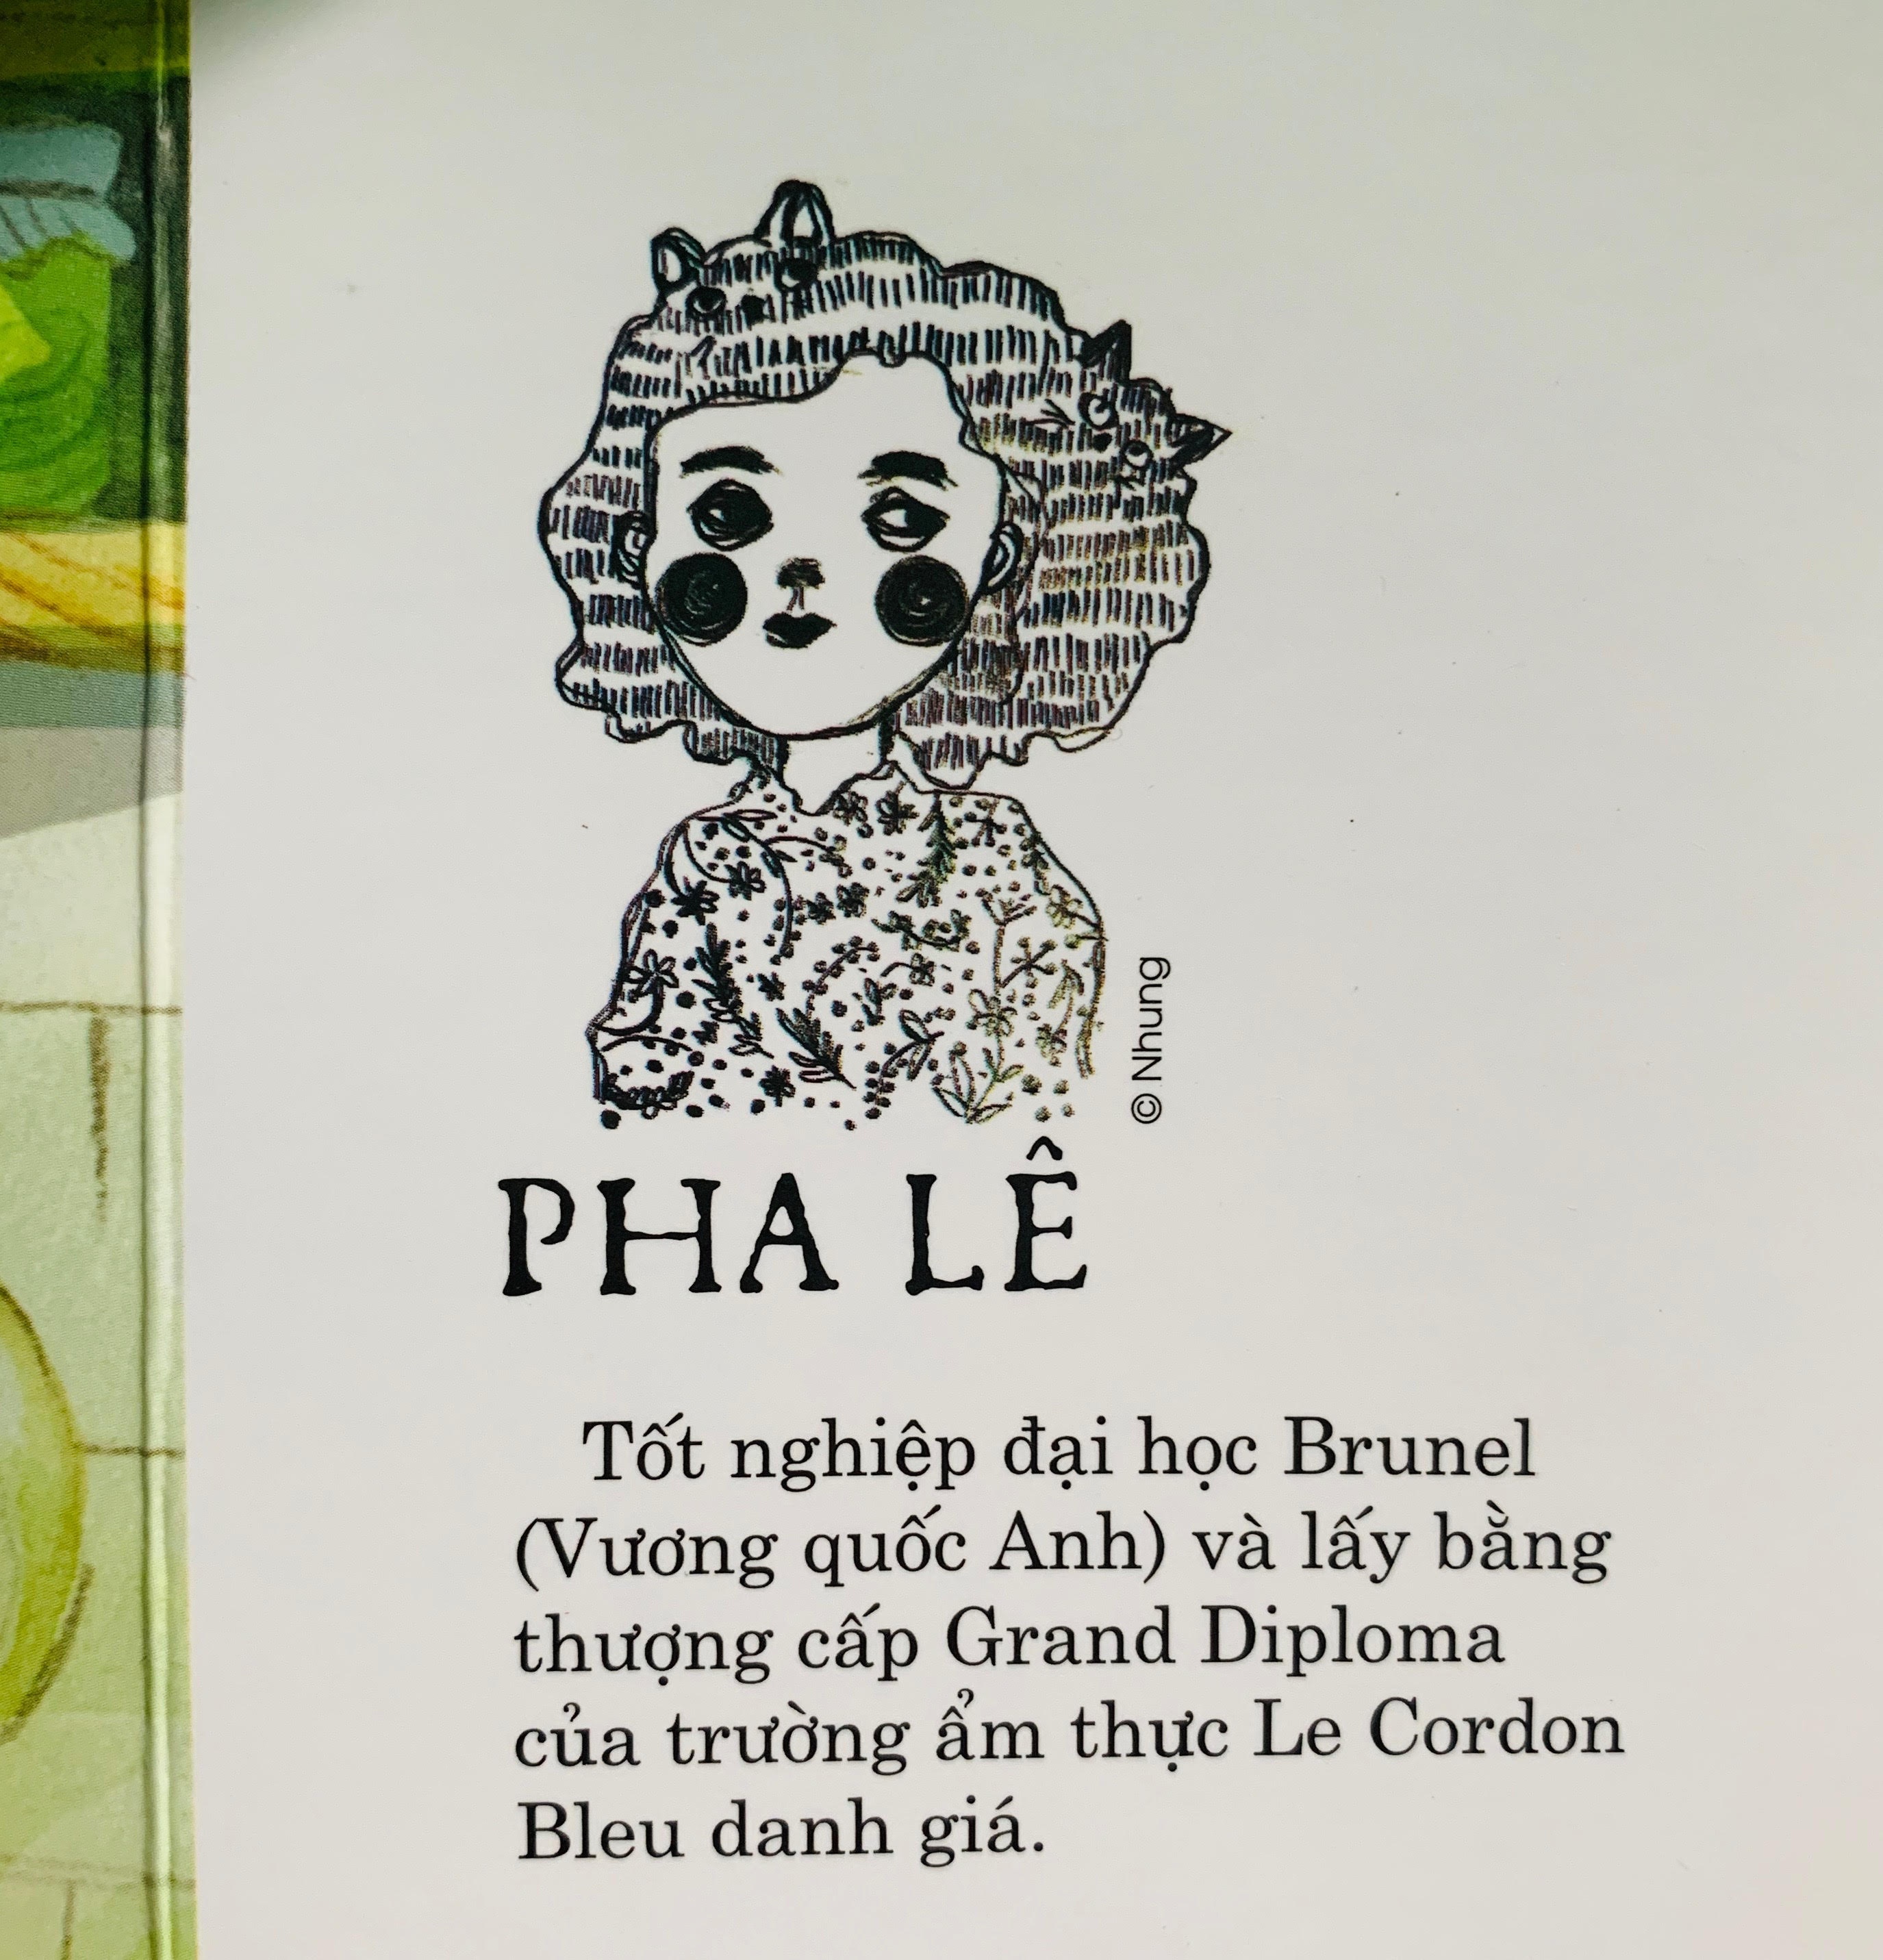 © Nhung
PHA LÊ
Tốt nghiệp đại học Brunel
(Vương quốc Anh) và lấy bằng
thượng cấp Grand Diploma
của trường ẩm thực Le Cordon
Bleu danh giá.